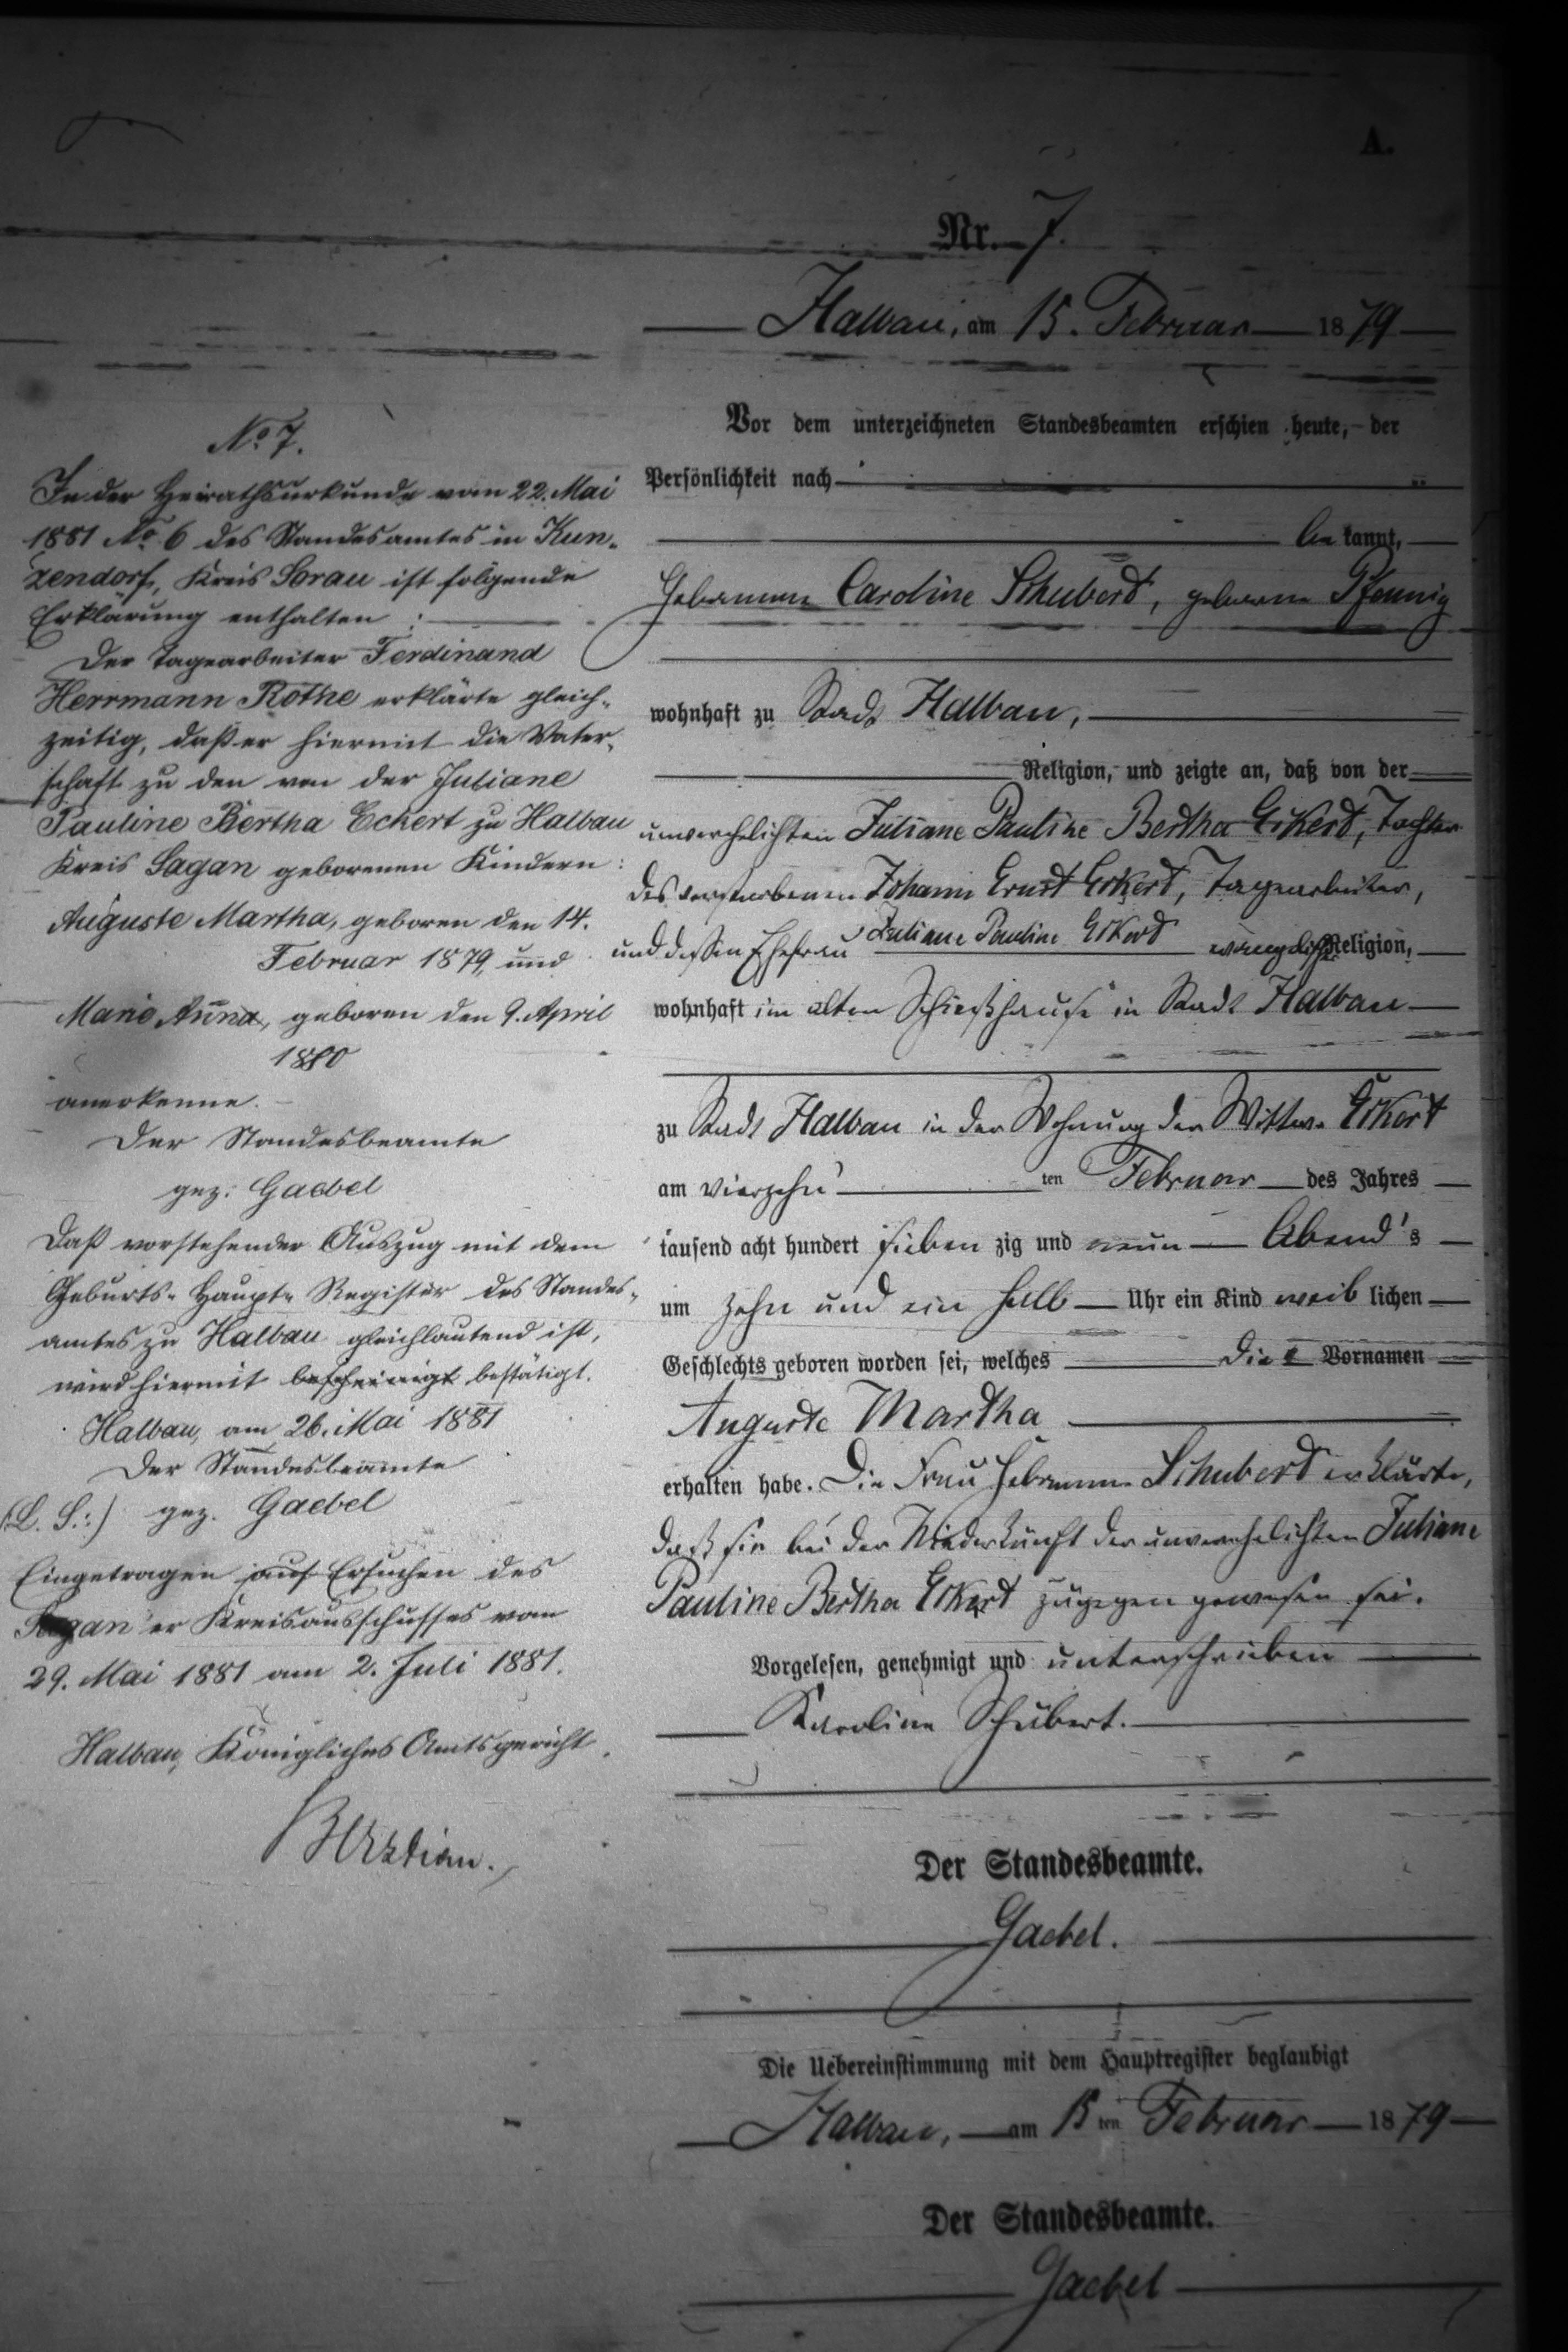 A.
Nr. 7.
Halbau, am 15. Februar 1879
Vor dem unterzeichneten Standesbeamten erschien heute, der
Persönlichkeit nach
bekannt,
Hebamme Caroline Schubert, geborene Pfennig
wohnhaft zu Stadt Halbau,
Religion, und zeigte an, daß von der
unverehelichten Juliane Pauline Bertha Eckert, Tochter
des verstorbenen Johann Ernst Eckert, Tagearbeiter,
und dessen Ehefrau Juliane Pauline Eckert evangelischer Religion,
wohnhaft im alten Schießhause in Stadt Halbau
zu Stadt Halbau in der Wohnung der Wittwe Eckert
am vierzehn ten Februar des Jahres
tausend acht hundert sieben zig und neun Abend's
um zehn und ein halb Uhr ein Kind weib lichen
Geschlechts geboren worden sei, welches die Vornamen
Auguste Martha
erhalten habe. Die Frau Hebamme Schubert erklärte,
daß sie bei der Niederkunft der unverehelichten Juliane
Pauline Bertha Eckert zugegen gewesen sei.
Vorgelesen, genehmigt und unterschrieben
Karoline Schubert.
Der Standesbeamte.
Gaebel.
Die Uebereinstimmung mit dem Hauptregister beglaubigt
Halbau, am 15 ten Februar 1879
Der Standesbeamte.
Gaebel
No 7.
In der Heirathsurkunde vom 22. Mai
1881 No 6 des Standesamtes in Kun-
zendorf, Kreis Sorau ist folgende
Erklärung enthalten :
Der Tagearbeiter Ferdinand
Herrmann Rothe erklärte gleich-
zeitig, daß er hiermit die Vater-
schaft zu den von der Juliane
Pauline Bertha Eckert zu Halbau
Kreis Sagan geborenen Kindern :
Auguste Martha, geboren den 14.
Februar 1879, und
Marie Anna, geboren den 9. April
1880
anerkenne.
Der Standesbeamte
gez: Gaebel
Daß vorstehender Auszug mit dem
Geburts- Haupt- Register des Standes-
amtes zu Halbau gleichlautend ist,
wird hiermit bescheinigt bestätigt.
Halbau, am 26. Mai 1881
Der Standesbeamte
(L. S.:) gez. Gaebel
Eingetragen auf Ersuchen des
Sagan'er Kreisausschusses vom
29. Mai 1881 am 2. Juli 1881.
Halbau, Königliches Amtsgericht.